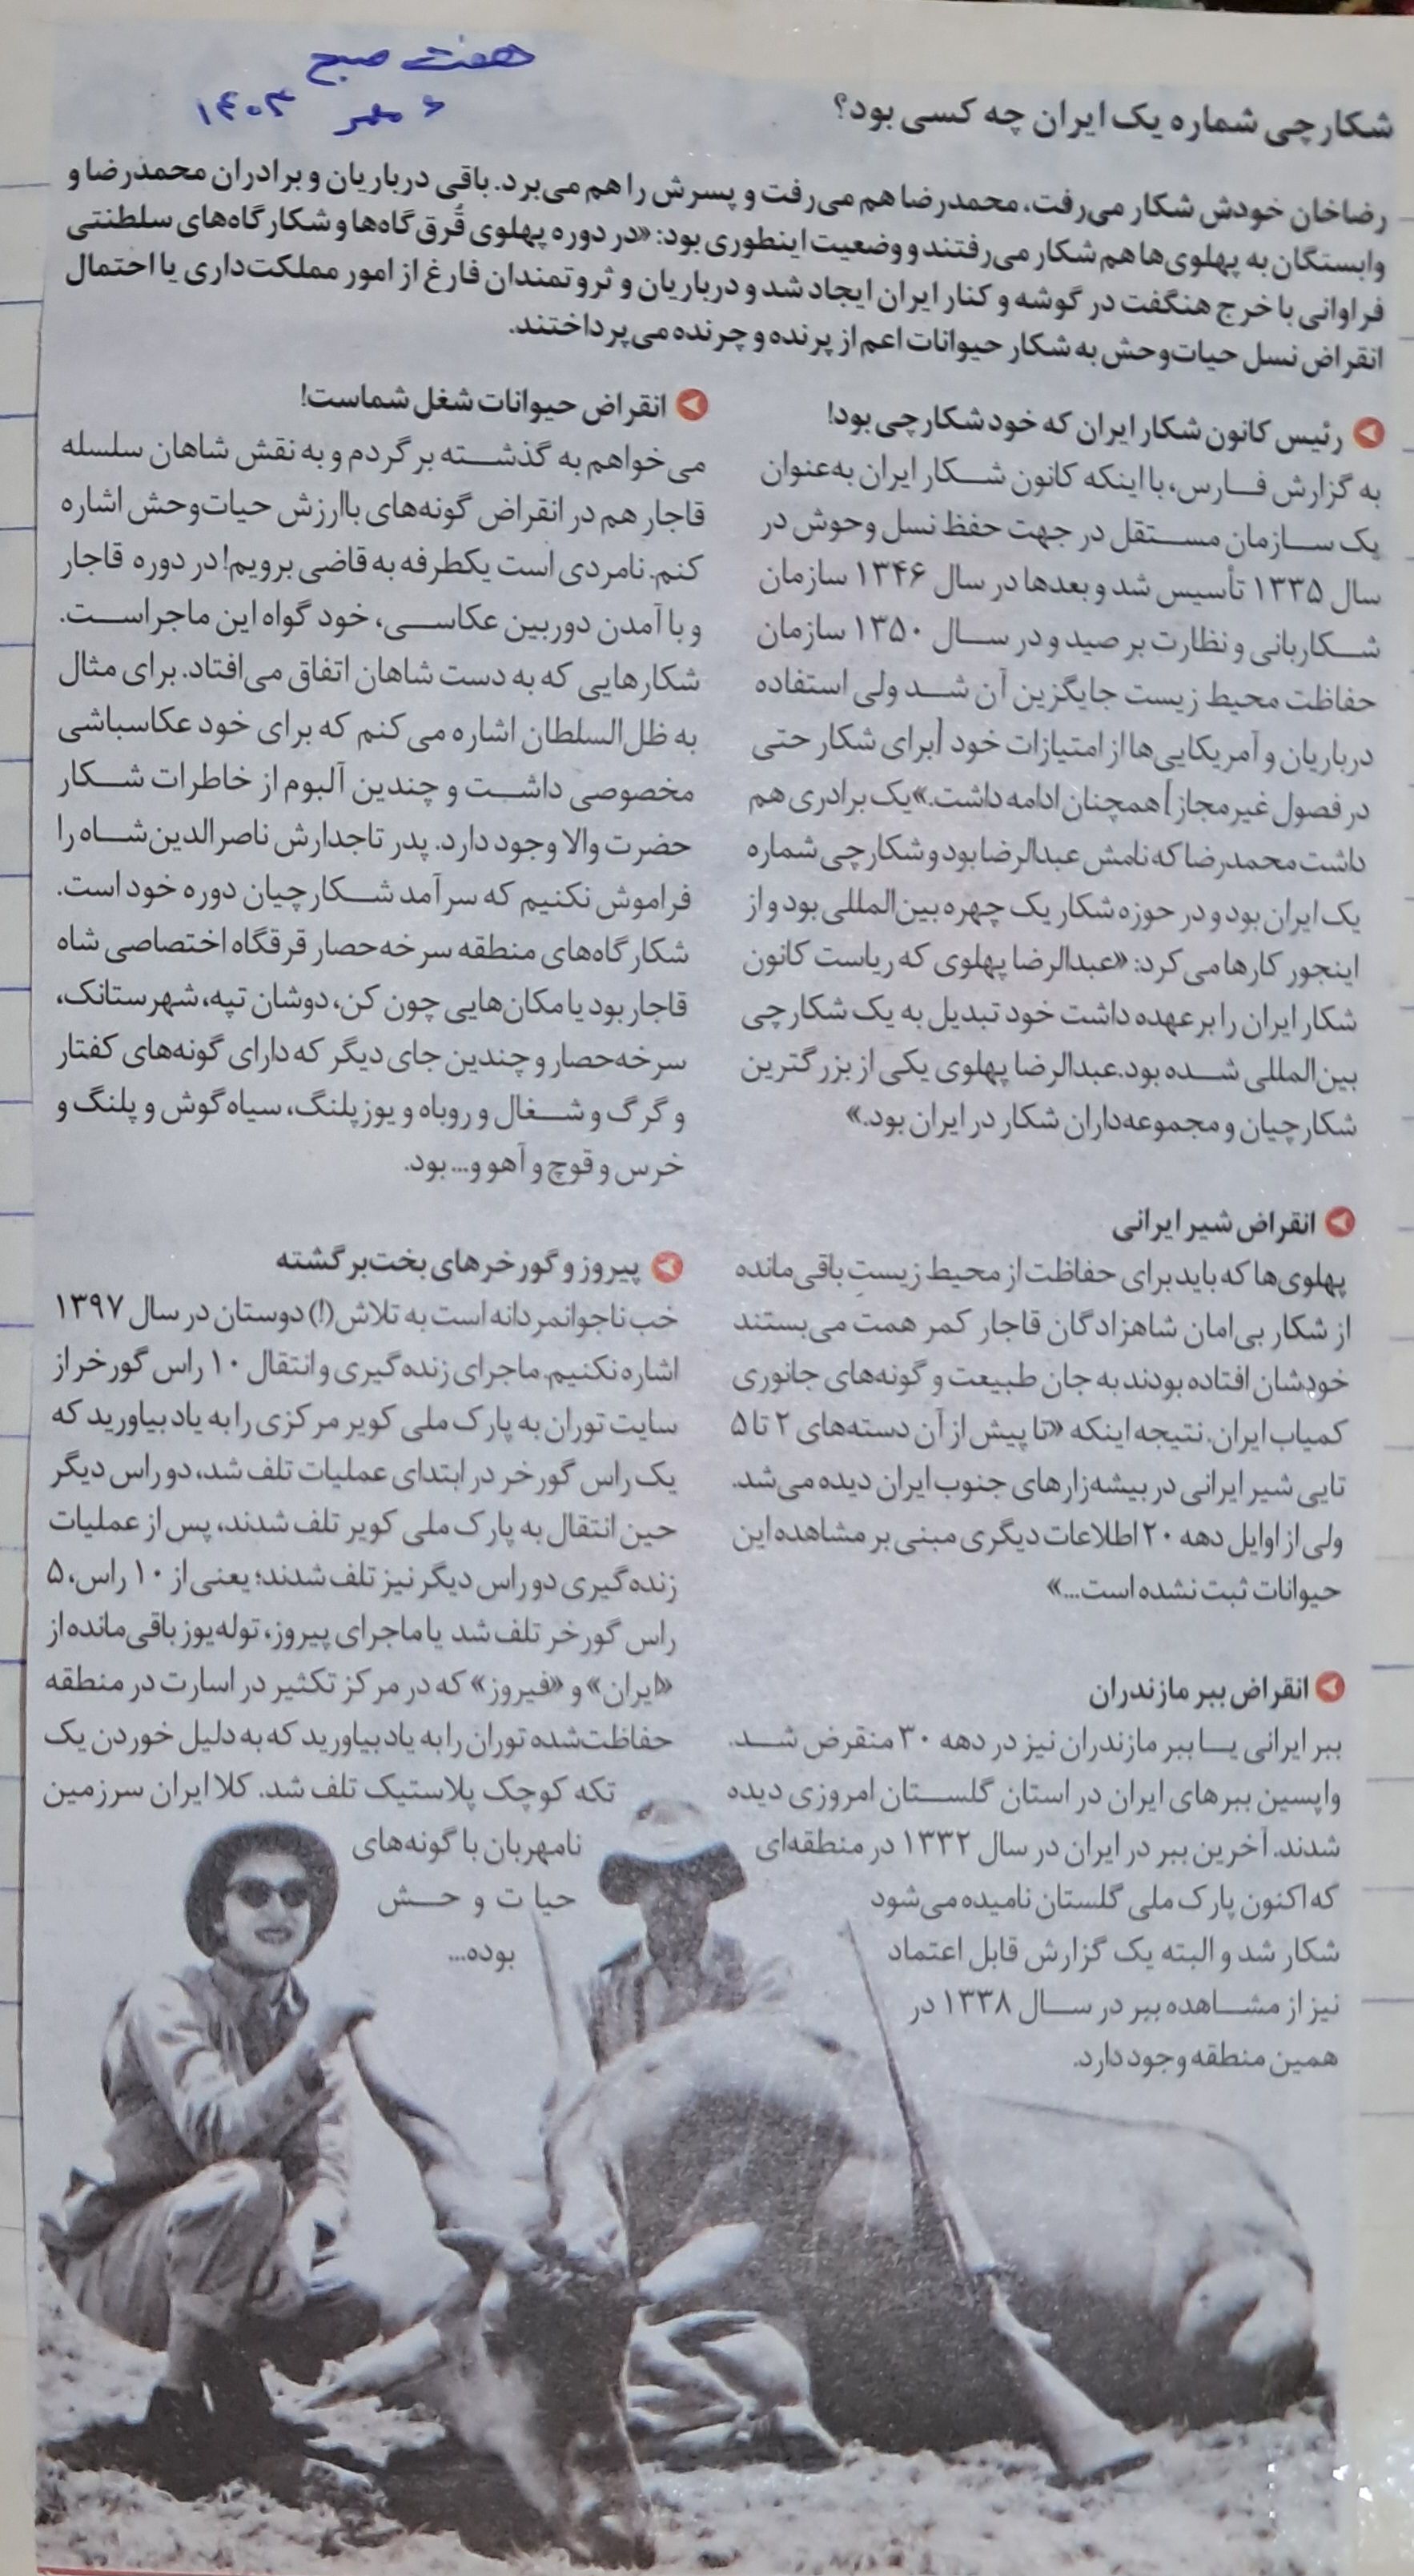 هفت صبح
۶ مهر ۱۴۰۳
شکارچی شماره یک ایران چه کسی بود؟
رضاخان خودش شکار می‌رفت، محمدرضا هم می‌رفت و پسرش را هم می‌برد. باقی درباریان و برادران محمدرضا و
وابستگان به پهلوی‌ها هم شکار می‌رفتند و وضعیت اینطوری بود: «در دوره پهلوی قُرق‌گاه‌ها و شکارگاه‌های سلطنتی
فراوانی با خرج هنگفت در گوشه و کنار ایران ایجاد شد و درباریان و ثروتمندان فارغ از امور مملکت‌داری یا احتمال
انقراض نسل حیات‌وحش به شکار حیوانات اعم از پرنده و چرنده می‌پرداختند.
رئیس کانون شکار ایران که خود شکارچی بود!
به گزارش فارس، با اینکه کانون شکار ایران به‌عنوان
یک سازمان مستقل در جهت حفظ نسل وحوش در
سال ۱۳۳۵ تأسیس شد و بعدها در سال ۱۳۴۶ سازمان
شکاربانی و نظارت بر صید و در سال ۱۳۵۰ سازمان
حفاظت محیط زیست جایگزین آن شد ولی استفاده
درباریان و آمریکایی‌ها از امتیازات خود [برای شکار حتی
در فصول غیرمجاز] همچنان ادامه داشت.» یک برادری هم
داشت محمدرضا که نامش عبدالرضا بود و شکارچی شماره
یک ایران بود و در حوزه شکار یک چهره بین‌المللی بود و از
اینجور کارها می‌کرد: «عبدالرضا پهلوی که ریاست کانون
شکار ایران را برعهده داشت خود تبدیل به یک شکارچی
بین‌المللی شده بود. عبدالرضا پهلوی یکی از بزرگترین
شکارچیان و مجموعه‌داران شکار در ایران بود.»
انقراض شیر ایرانی
پهلوی‌ها که باید برای حفاظت از محیط زیستِ باقی‌مانده
از شکار بی‌امان شاهزادگان قاجار کمر همت می‌بستند
خودشان افتاده بودند به جان طبیعت و گونه‌های جانوری
کمیاب ایران. نتیجه اینکه «تا پیش از آن دسته‌های ۲ تا ۵
تایی شیر ایرانی در بیشه‌زارهای جنوب ایران دیده می‌شد.
ولی از اوایل دهه ۲۰ اطلاعات دیگری مبنی بر مشاهده این
حیوانات ثبت نشده است...»
انقراض ببر مازندران
ببر ایرانی یا ببر مازندران نیز در دهه ۳۰ منقرض شد.
واپسین ببرهای ایران در استان گلستان امروزی دیده
شدند. آخرین ببر در ایران در سال ۱۳۳۲ در منطقه‌ای
که اکنون پارک ملی گلستان نامیده می‌شود
شکار شد و البته یک گزارش قابل اعتماد
نیز از مشاهده ببر در سال ۱۳۳۸ در
همین منطقه وجود دارد.
انقراض حیوانات شغل شماست!
می‌خواهم به گذشته برگردم و به نقش شاهان سلسله
قاجار هم در انقراض گونه‌های باارزش حیات‌وحش اشاره
کنم. نامردی است یکطرفه به قاضی برویم! در دوره قاجار
و با آمدن دوربین عکاسی، خود گواه این ماجراست.
شکارهایی که به دست شاهان اتفاق می‌افتاد. برای مثال
به ظل‌السلطان اشاره می‌کنم که برای خود عکاسباشی
مخصوصی داشت و چندین آلبوم از خاطرات شکار
حضرت والا وجود دارد. پدر تاجدارش ناصرالدین‌شاه را
فراموش نکنیم که سرآمد شکارچیان دوره خود است.
شکارگاه‌های منطقه سرخه‌حصار قرقگاه اختصاصی شاه
قاجار بود یا مکان‌هایی چون کن، دوشان تپه، شهرستانک،
سرخه‌حصار و چندین جای دیگر که دارای گونه‌های کفتار
و گرگ و شغال و روباه و یوزپلنگ، سیاه‌گوش و پلنگ و
خرس و قوچ و آهو و... بود.
پیروز و گورخرهای بخت‌برگشته
خب ناجوانمردانه است به تلاش(!) دوستان در سال ۱۳۹۷
اشاره نکنیم. ماجرای زنده‌گیری و انتقال ۱۰ راس گورخر از
سایت توران به پارک ملی کویر مرکزی را به یاد بیاورید که
یک راس گورخر در ابتدای عملیات تلف شد، دو راس دیگر
حین انتقال به پارک ملی کویر تلف شدند، پس از عملیات
زنده‌گیری دو راس دیگر نیز تلف شدند؛ یعنی از ۱۰ راس، ۵
راس گورخر تلف شد یا ماجرای پیروز، توله یوز باقی‌مانده از
«ایران» و «فیروز» که در مرکز تکثیر در اسارت در منطقه
حفاظت‌شده توران را به یاد بیاورید که به دلیل خوردن یک
تکه کوچک پلاستیک تلف شد. کلا ایران سرزمین
نامهربان با گونه‌های
حیات وحش
بوده...